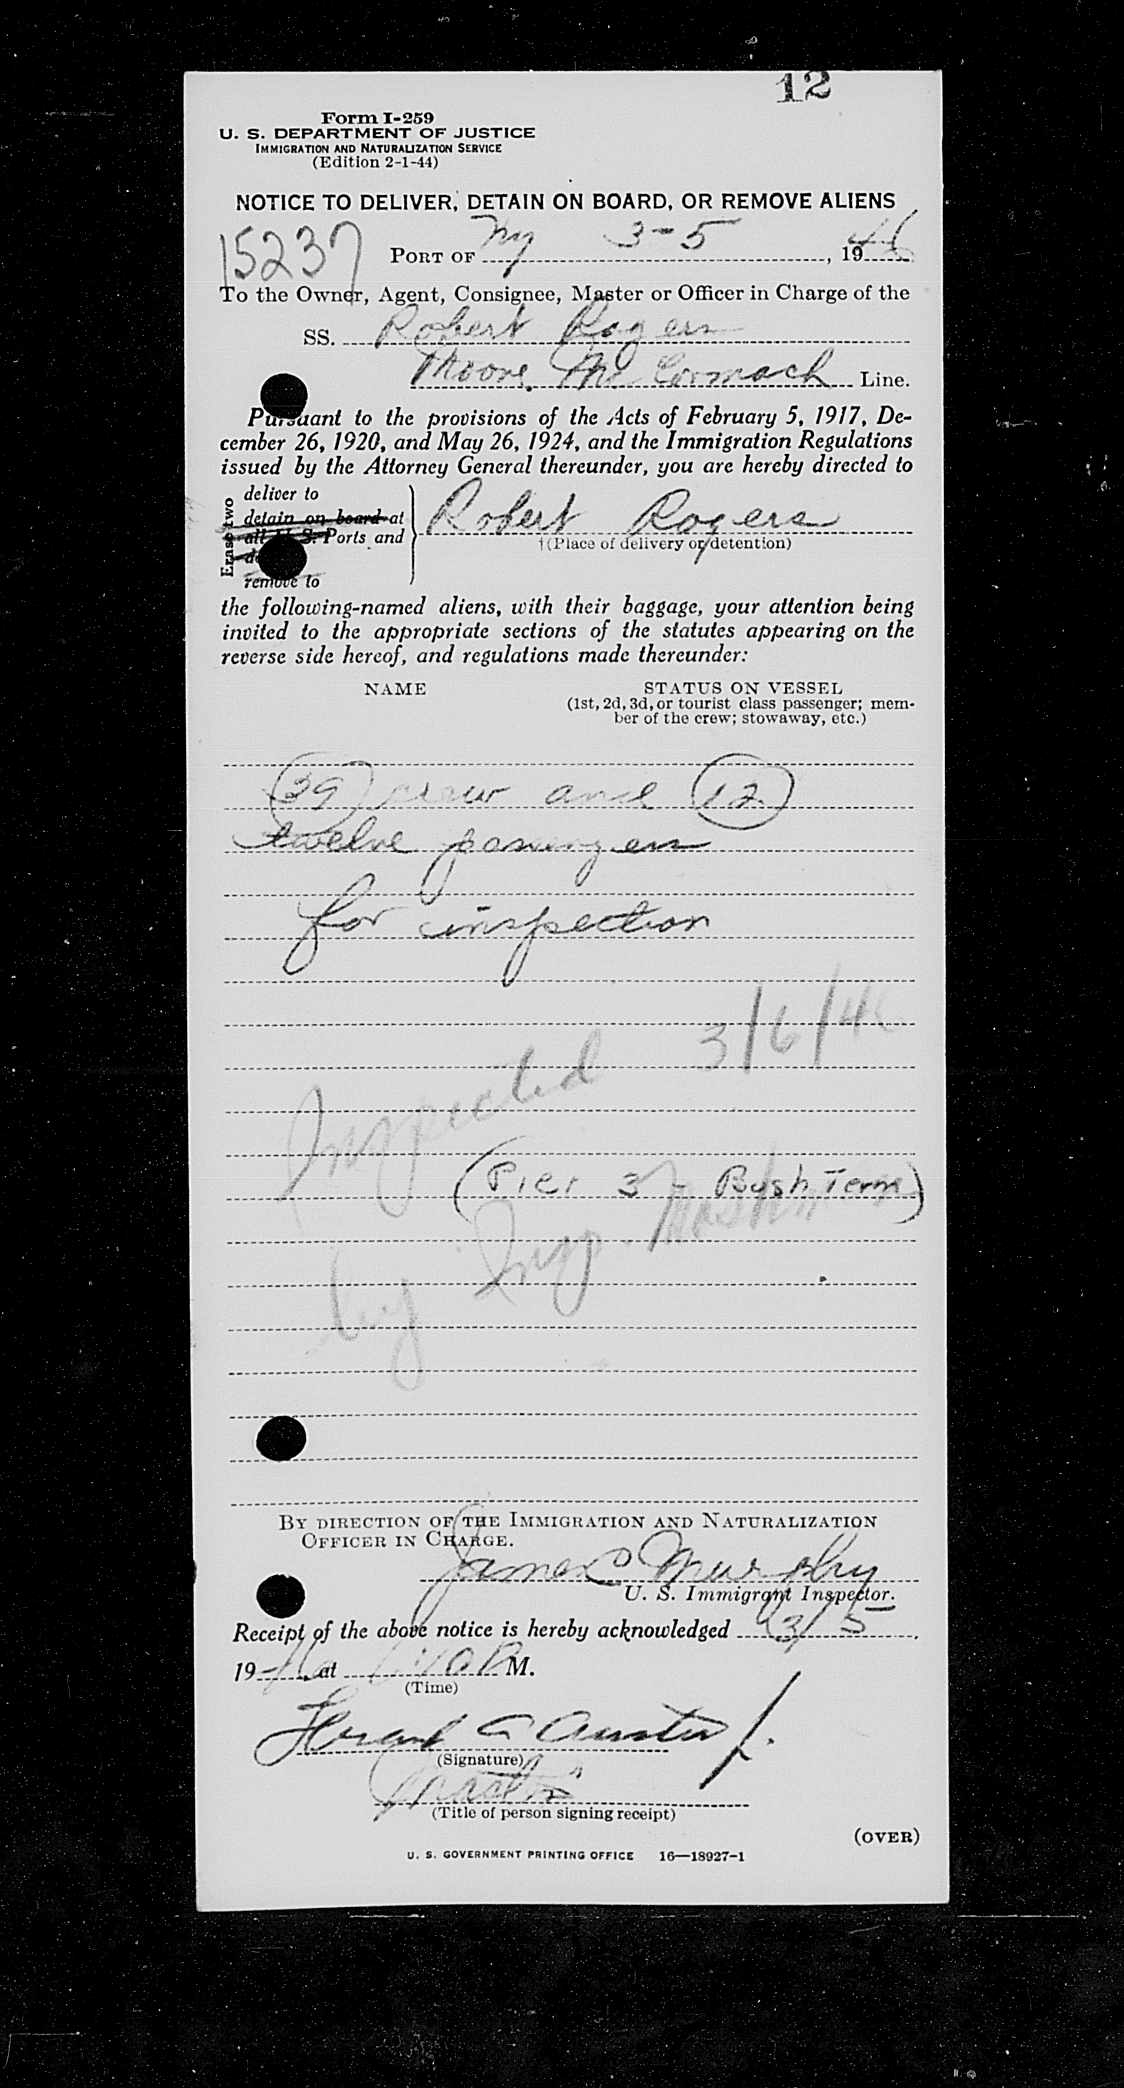 12
Form I-259
U. S. DEPARTMENT OF JUSTICE
IMMIGRATION AND NATURALIZATION SERVICE
(Edition 2-1-44)
NOTICE TO DELIVER, DETAIN ON BOARD, OR REMOVE ALIENS
15237
PORT OF NY 3-5, 1946
To the Owner, Agent, Consignee, Master or Officer in Charge of the
SS. Robert Rogers
Moore Mc Cormack Line.
Pursuant to the provisions of the Acts of February 5, 1917, De-
cember 26, 1920, and May 26, 1924, and the Immigration Regulations
issued by the Attorney General thereunder, you are hereby directed to
Erase two
deliver to
detain on board at
all U. S. Ports and
remove to
Robert Rogers
†(Place of delivery or detention)
the following-named aliens, with their baggage, your attention being
invited to the appropriate sections of the statutes appearing on the
reverse side hereof, and regulations made thereunder:
NAME
STATUS ON VESSEL
(1st, 2d, 3d, or tourist class passenger; mem-
ber of the crew; stowaway, etc.)
39 crew and 12
twelve passengers
for inspection
3/6/46
Inspected
(Pier 3 - Bush Term)
by Insp.
BY DIRECTION OF THE IMMIGRATION AND NATURALIZATION
OFFICER IN CHARGE.
James Murphy
U. S. Immigrant Inspector.
Receipt of the above notice is hereby acknowledged 3/5,
1946, at M.
(Time)
(Signature)
Master
(Title of person signing receipt)
(OVER)
U. S. GOVERNMENT PRINTING OFFICE 16—18927-1